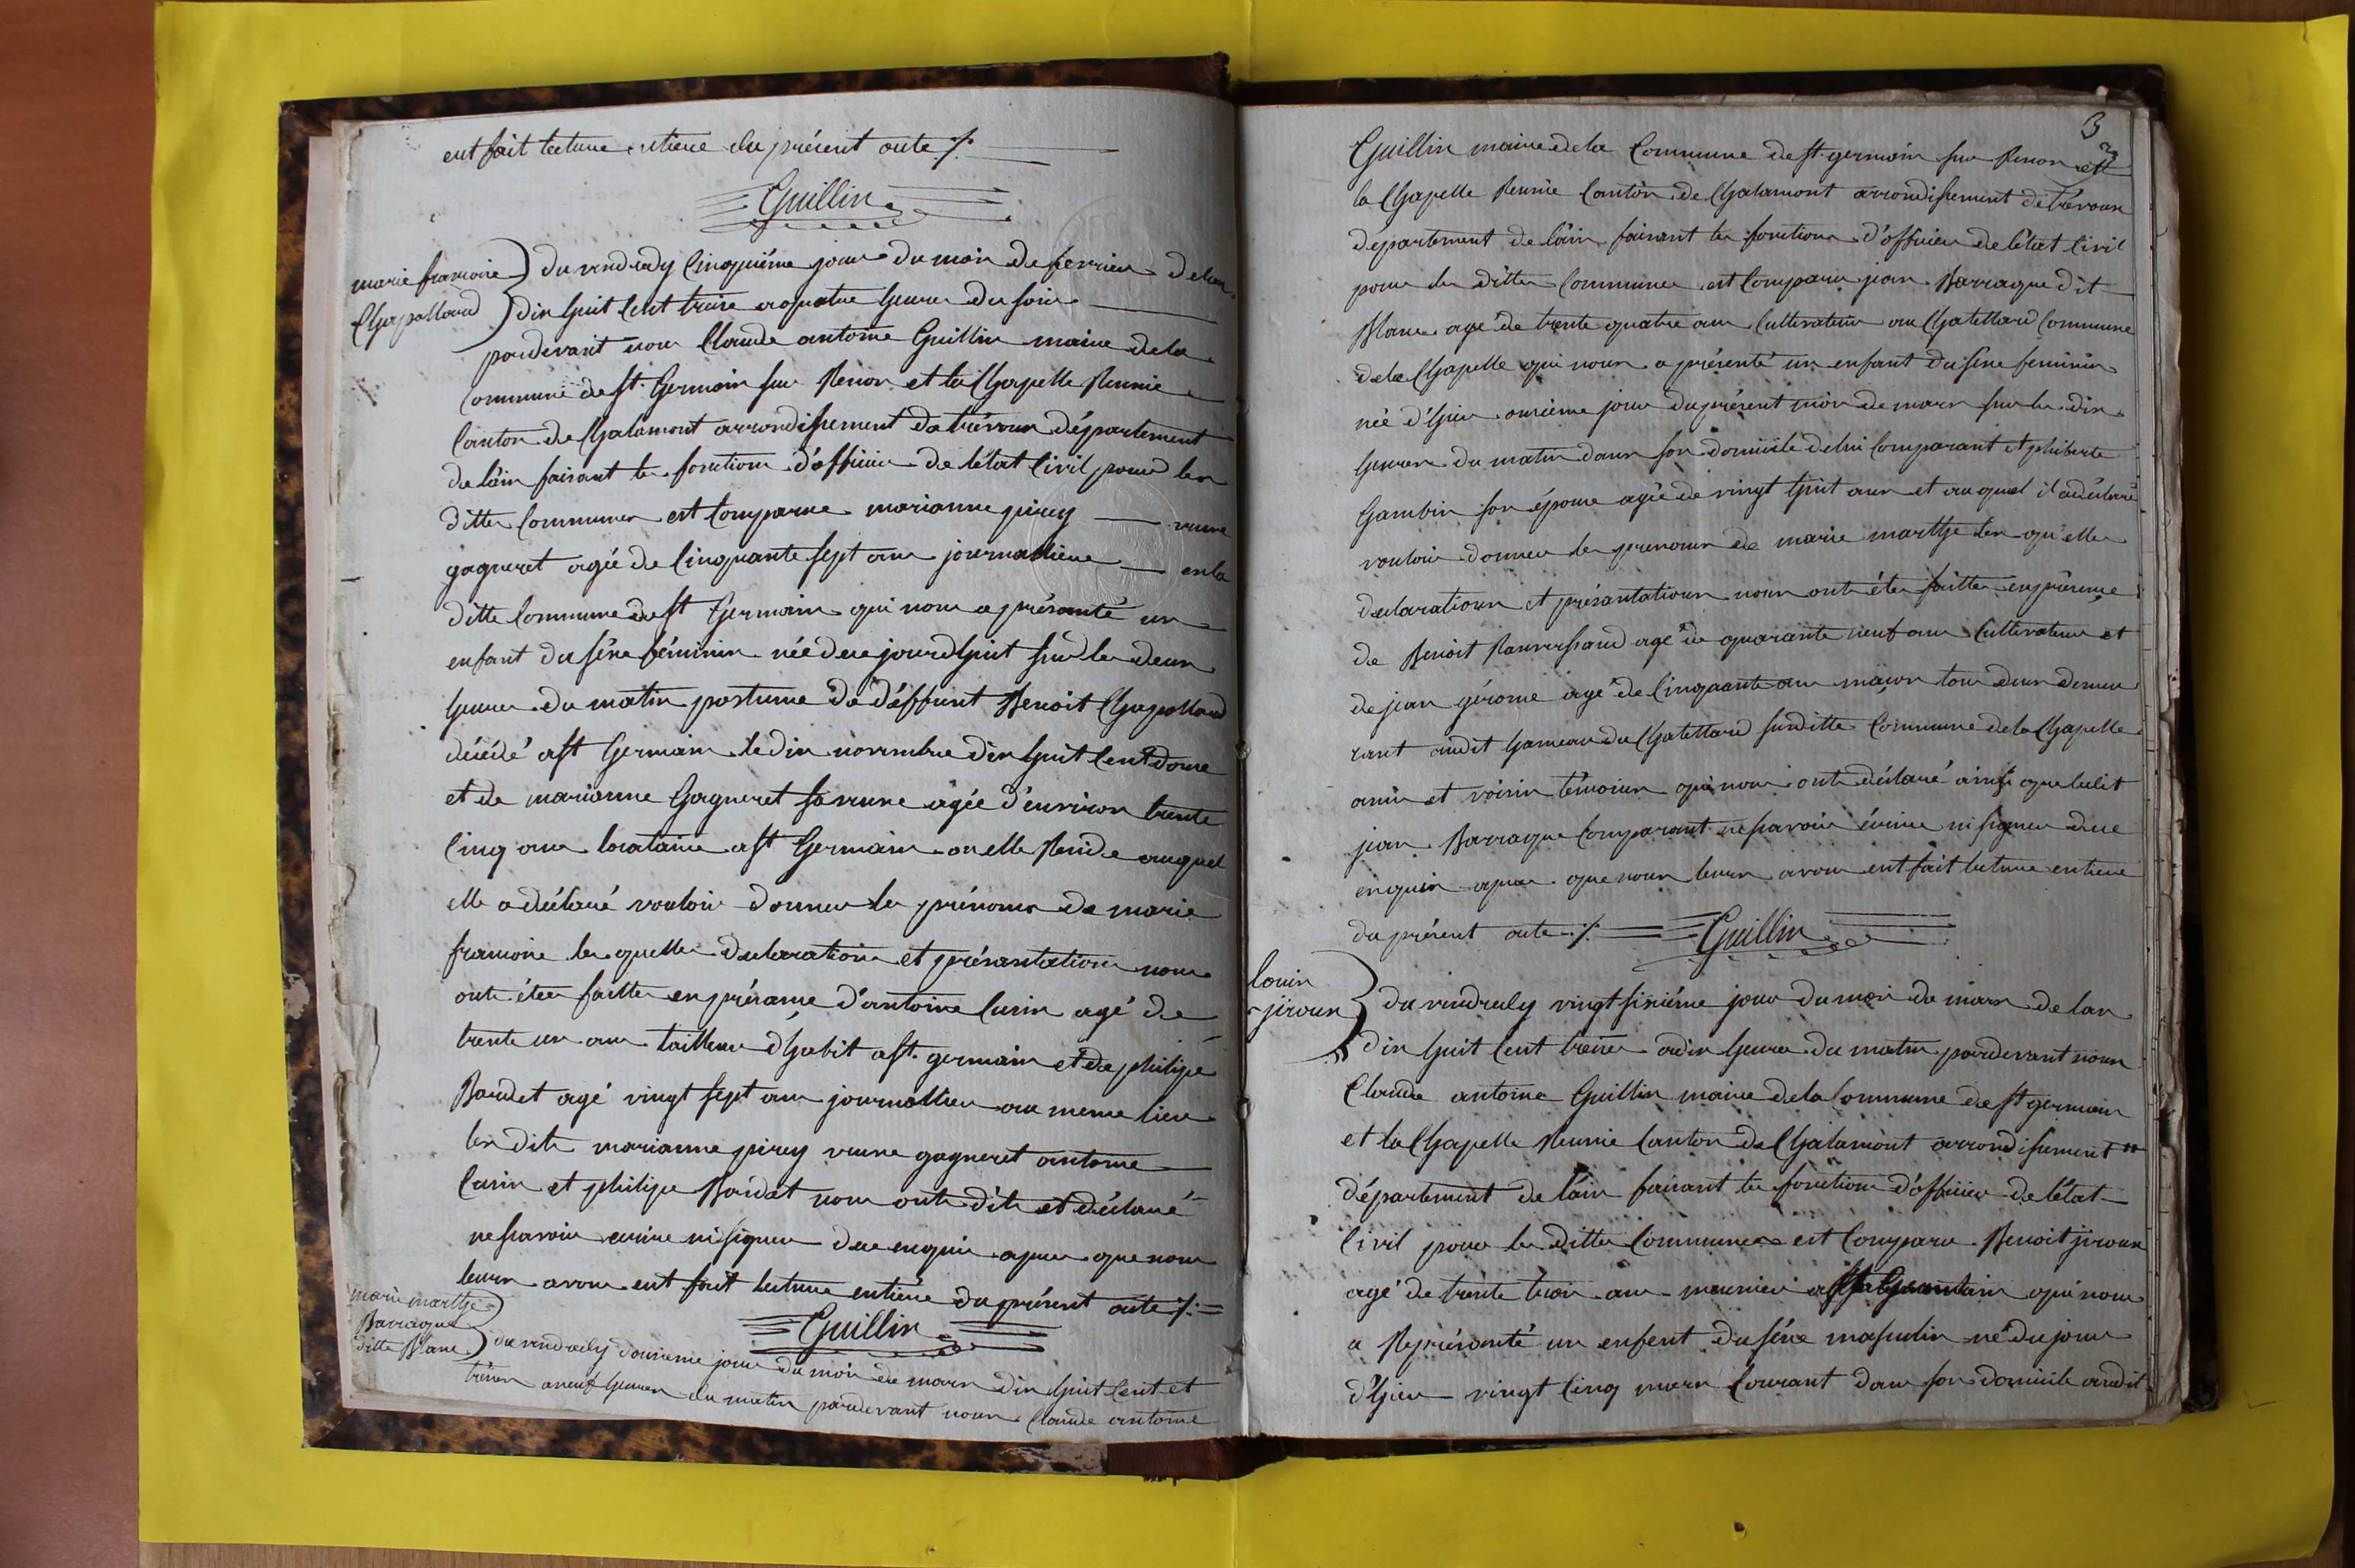 ent fait lecture entiere du présent acte ./.
Guillin
marie francoise
Chapolland
du vendredy cinquiéme jour du mois de fevrier de lan
dix huit cent treize a quatre heures du soir
pardevant nous Claude antoine Guillin maire de la
Commune de st. Germain sur Renon et la Chapelle Reunie
Canton de Chalamont arrondissement de trévoux département
de l'ain faisant les fonctions d'officier de l'état Civil pour les
dittes Communes est Comparue marianne pirey veuve
gagneret agée de cinquante sept ans journalliere en la
ditte Commune de st Germain qui nous a présanté un
enfant du séxe féminin née de ce jourd'huit sur les deux
heures du matin postume de déffunt Benoit Chapolland
décédé a st Germain le dix novembre dix huit cent douze
et de marianne Gagneret sa veuve agée d'environ trente
cinq ans locataire a st Germain ou elle Reside auquel
elle a déclaré vouloir donner les prénoms de marie
francoise les quelles declarations et présantations nous
ont étés faittes en présance d'antoine Curin agé de
trente un ans tailleur d'habit a st. germain et de philipe
Bardet agé vingt sept ans journallier au meme lieu
les dits marianne pirey veuve gagneret antoine
Curin et philipe Bardet nous ont dits et déclaré
ne savoir ecrire ni signer de ce enquis apres que nous
leurs avons ent fait lecture entiére du présent acte ./.
Guillin
marie marthe
Barraque
ditte Blanc
du vendredy douzieme jour du mois de mars dix huit cent et
treize a neuf heures du matin pardevant nous Claude antoine
3
Guillin maire de la Commune de st. germain sur Renon et
la Chapelle Reunie Canton de Chalamont arrondissement de trévoux
département de l'ain faisant les fonctions d'officier de l'état Civil
pour les dittes Communes est Comparu jean Barraque dit
Blanc agé de trente quatre ans Cultivateur au Chatellard Commune
de la Chapelle qui nous a présenté un enfant du séxe féminin
née d'hier onzieme jour du présent mois de mars sur les dix
heures du matin dans son domicile de lui Comparant et philiberte
Gambin son épouse agée de vingt huit ans et auquel il a déclaré
vouloir donner les prenoms de marie marthe les qu'elles
declarations et présantations nous ont étés faittes en présence
de Benoit agé de quarante neuf ans Cultivateur et
de jean gérome agé de cinquante ans maçon tous deux demeu
rant audit hameau du Chatellard susditte Commune de la Chapelle
amis et voisin témoins qui nous ont déclaré ainsi que ledit
jean Barraque Comparant ne savoir écrire ni signer de ce
enquis apres que nous leurs avons ent fait lecture entiere
du présent acte ./. Guillin
louis
jiroux
du vendredy vingt sixiéme jour du mois de mars de lan
dix huit cent treize a dix heures du matin pardevant nous
Claude antoine Guillin maire de la Commune de st germain
et la Chapelle Reunie Canton de Chalamont arrondissement
département de l'ain faisant les fonctions d'officier de l'état
Civil pour les dittes Communes est Comparu Benoit jiroux
agé de trente trois ans meunier a qui nous
a Représanté un enfent du séxe masculin né du jour
d'hier vingt cinq mars Courant dans son domicile audit